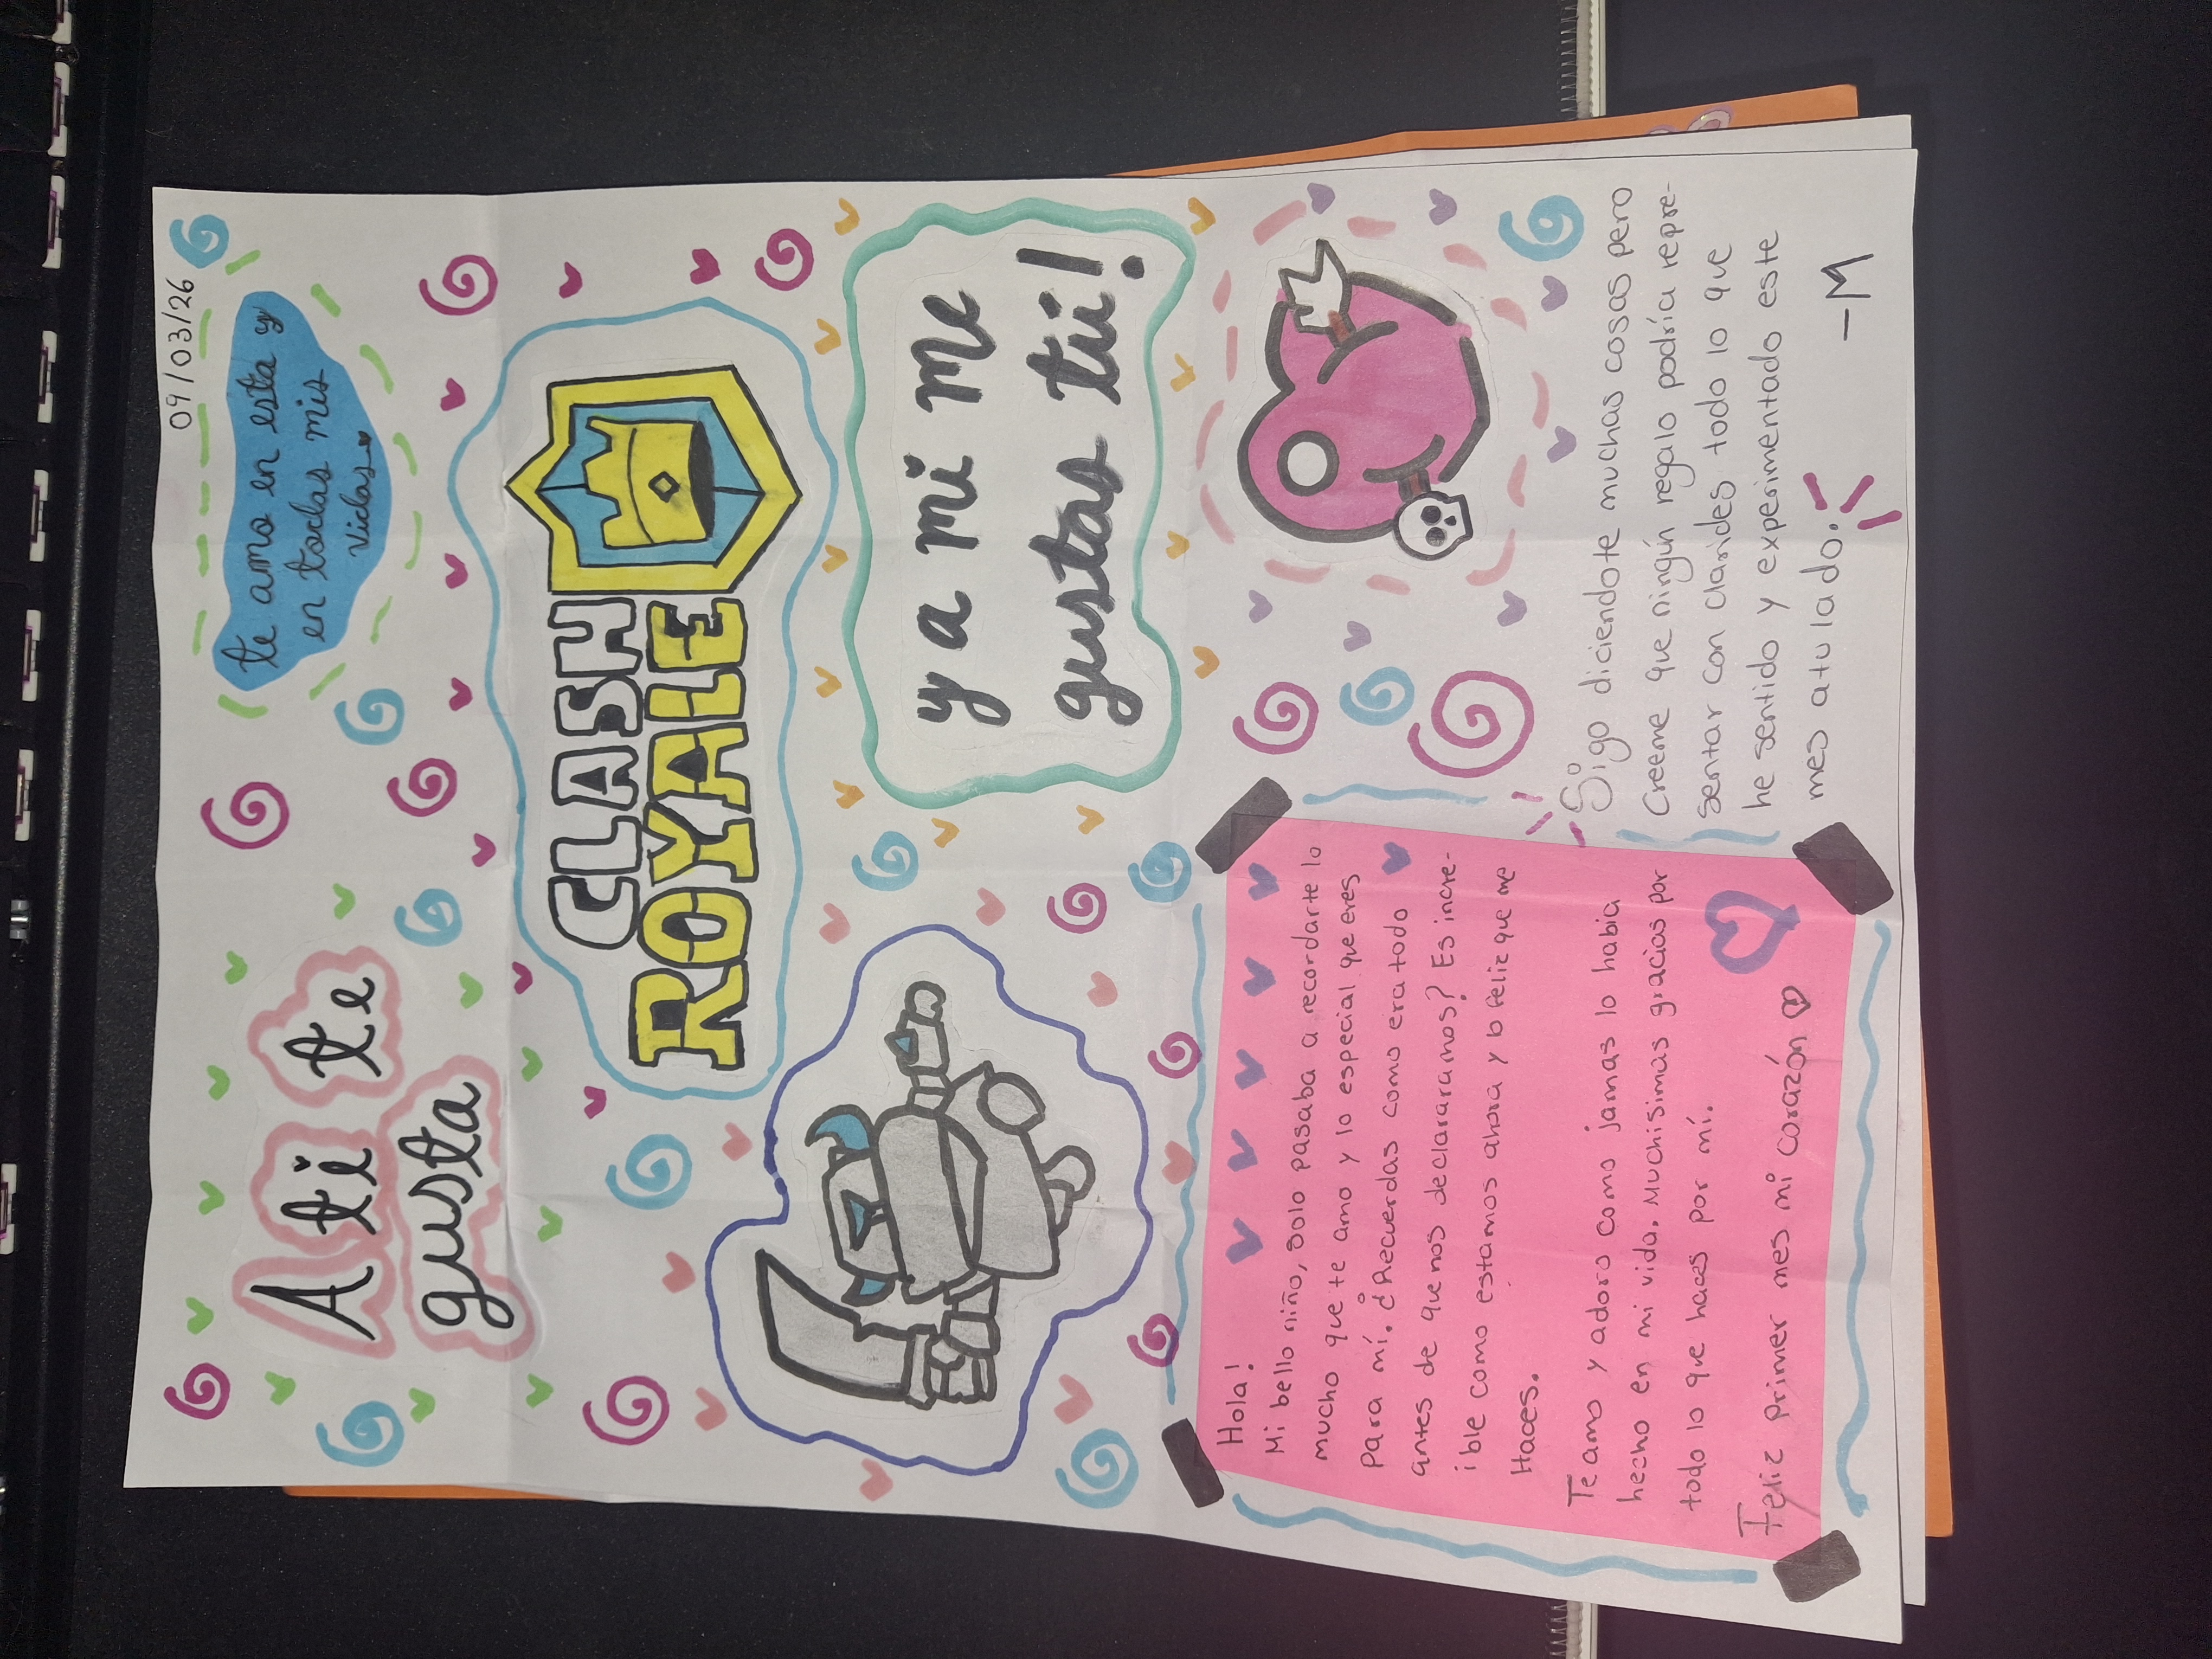 09/03/26
A ti te
gusta
te amo en esta y
en todas mis
vidas
CLASH
ROYALE
y a mi me
gustas tú!
Hola!
Mi bello niño, solo pasaba a recordarte lo
mucho que te amo y lo especial que eres
para mí. ¿Recuerdas como era todo
antes de que nos declararamos? Es incre-
ible como estamos ahora y lo feliz que me
Haces.
Te amo y adoro como jamas lo habia
hecho en mi vida. Muchisimas gracias por
todo lo que haces por mí.
Feliz primer mes mi corazón
Sigo diciendote muchas cosas pero
Creeme que ningún regalo podría repre-
sentar con clarides todo lo que
he sentido y experimentado este
mes a tu lado.
-M